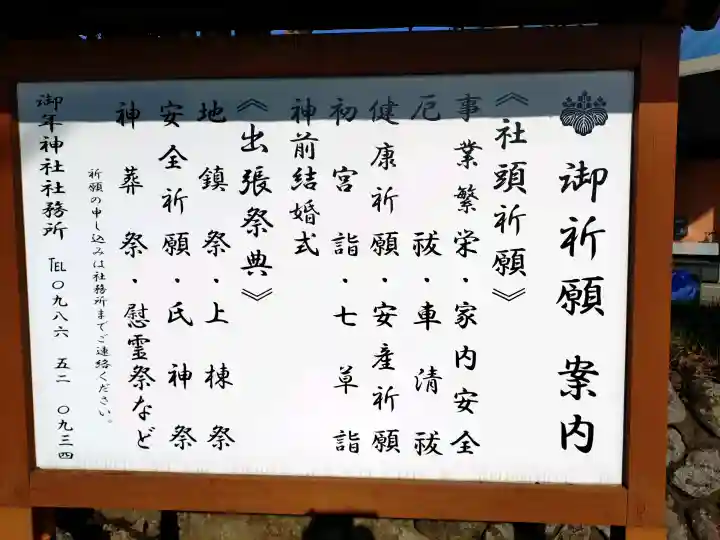 御祈願 案内
《社頭祈願》
事業繁栄・家内安全
厄祓・車清祓
健康祈願・安産祈願
初宮詣・七草詣
神前結婚式
《出張祭典》
地鎮祭・上棟祭
安全祈願・氏神祭
神葬祭・慰霊祭など
祈願の申し込みは社務所までご連絡ください。
御年神社社務所 ℡〇九八六 五二 〇九三四